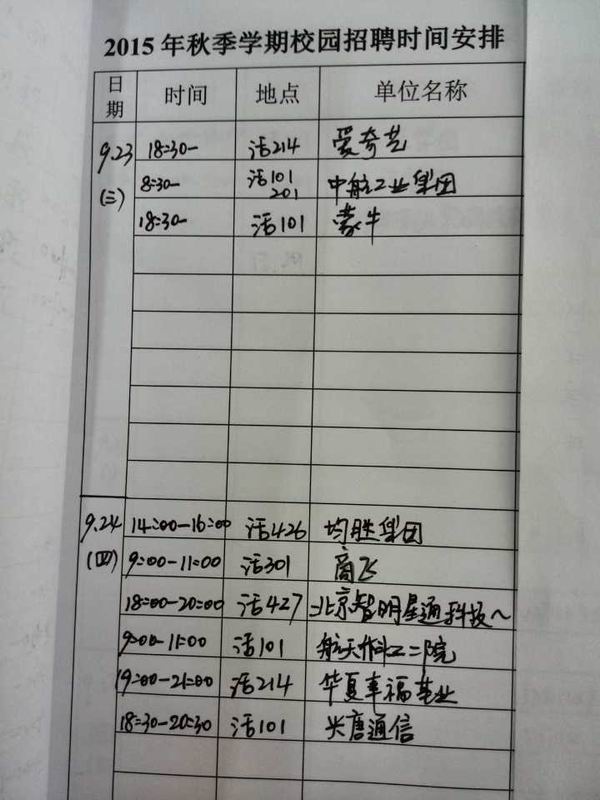 2015年秋季学期校园招聘时间安排
日期 时间 地点 单位名称
9.23 (三) 18:30- 活214 爱奇艺
8:30- 活101 201 中航工业集团
18:30- 活101 蒙牛
9.24 (四) 14:00-16:00 活426 均胜集团
9:00-11:00 活301 商飞
18:00-20:00 活427 北京智明星通科技~
9:00-11:00 活101 航天科工二院
19:00-21:00 活214 华夏幸福基业
18:30-20:30 活101 兴唐通信